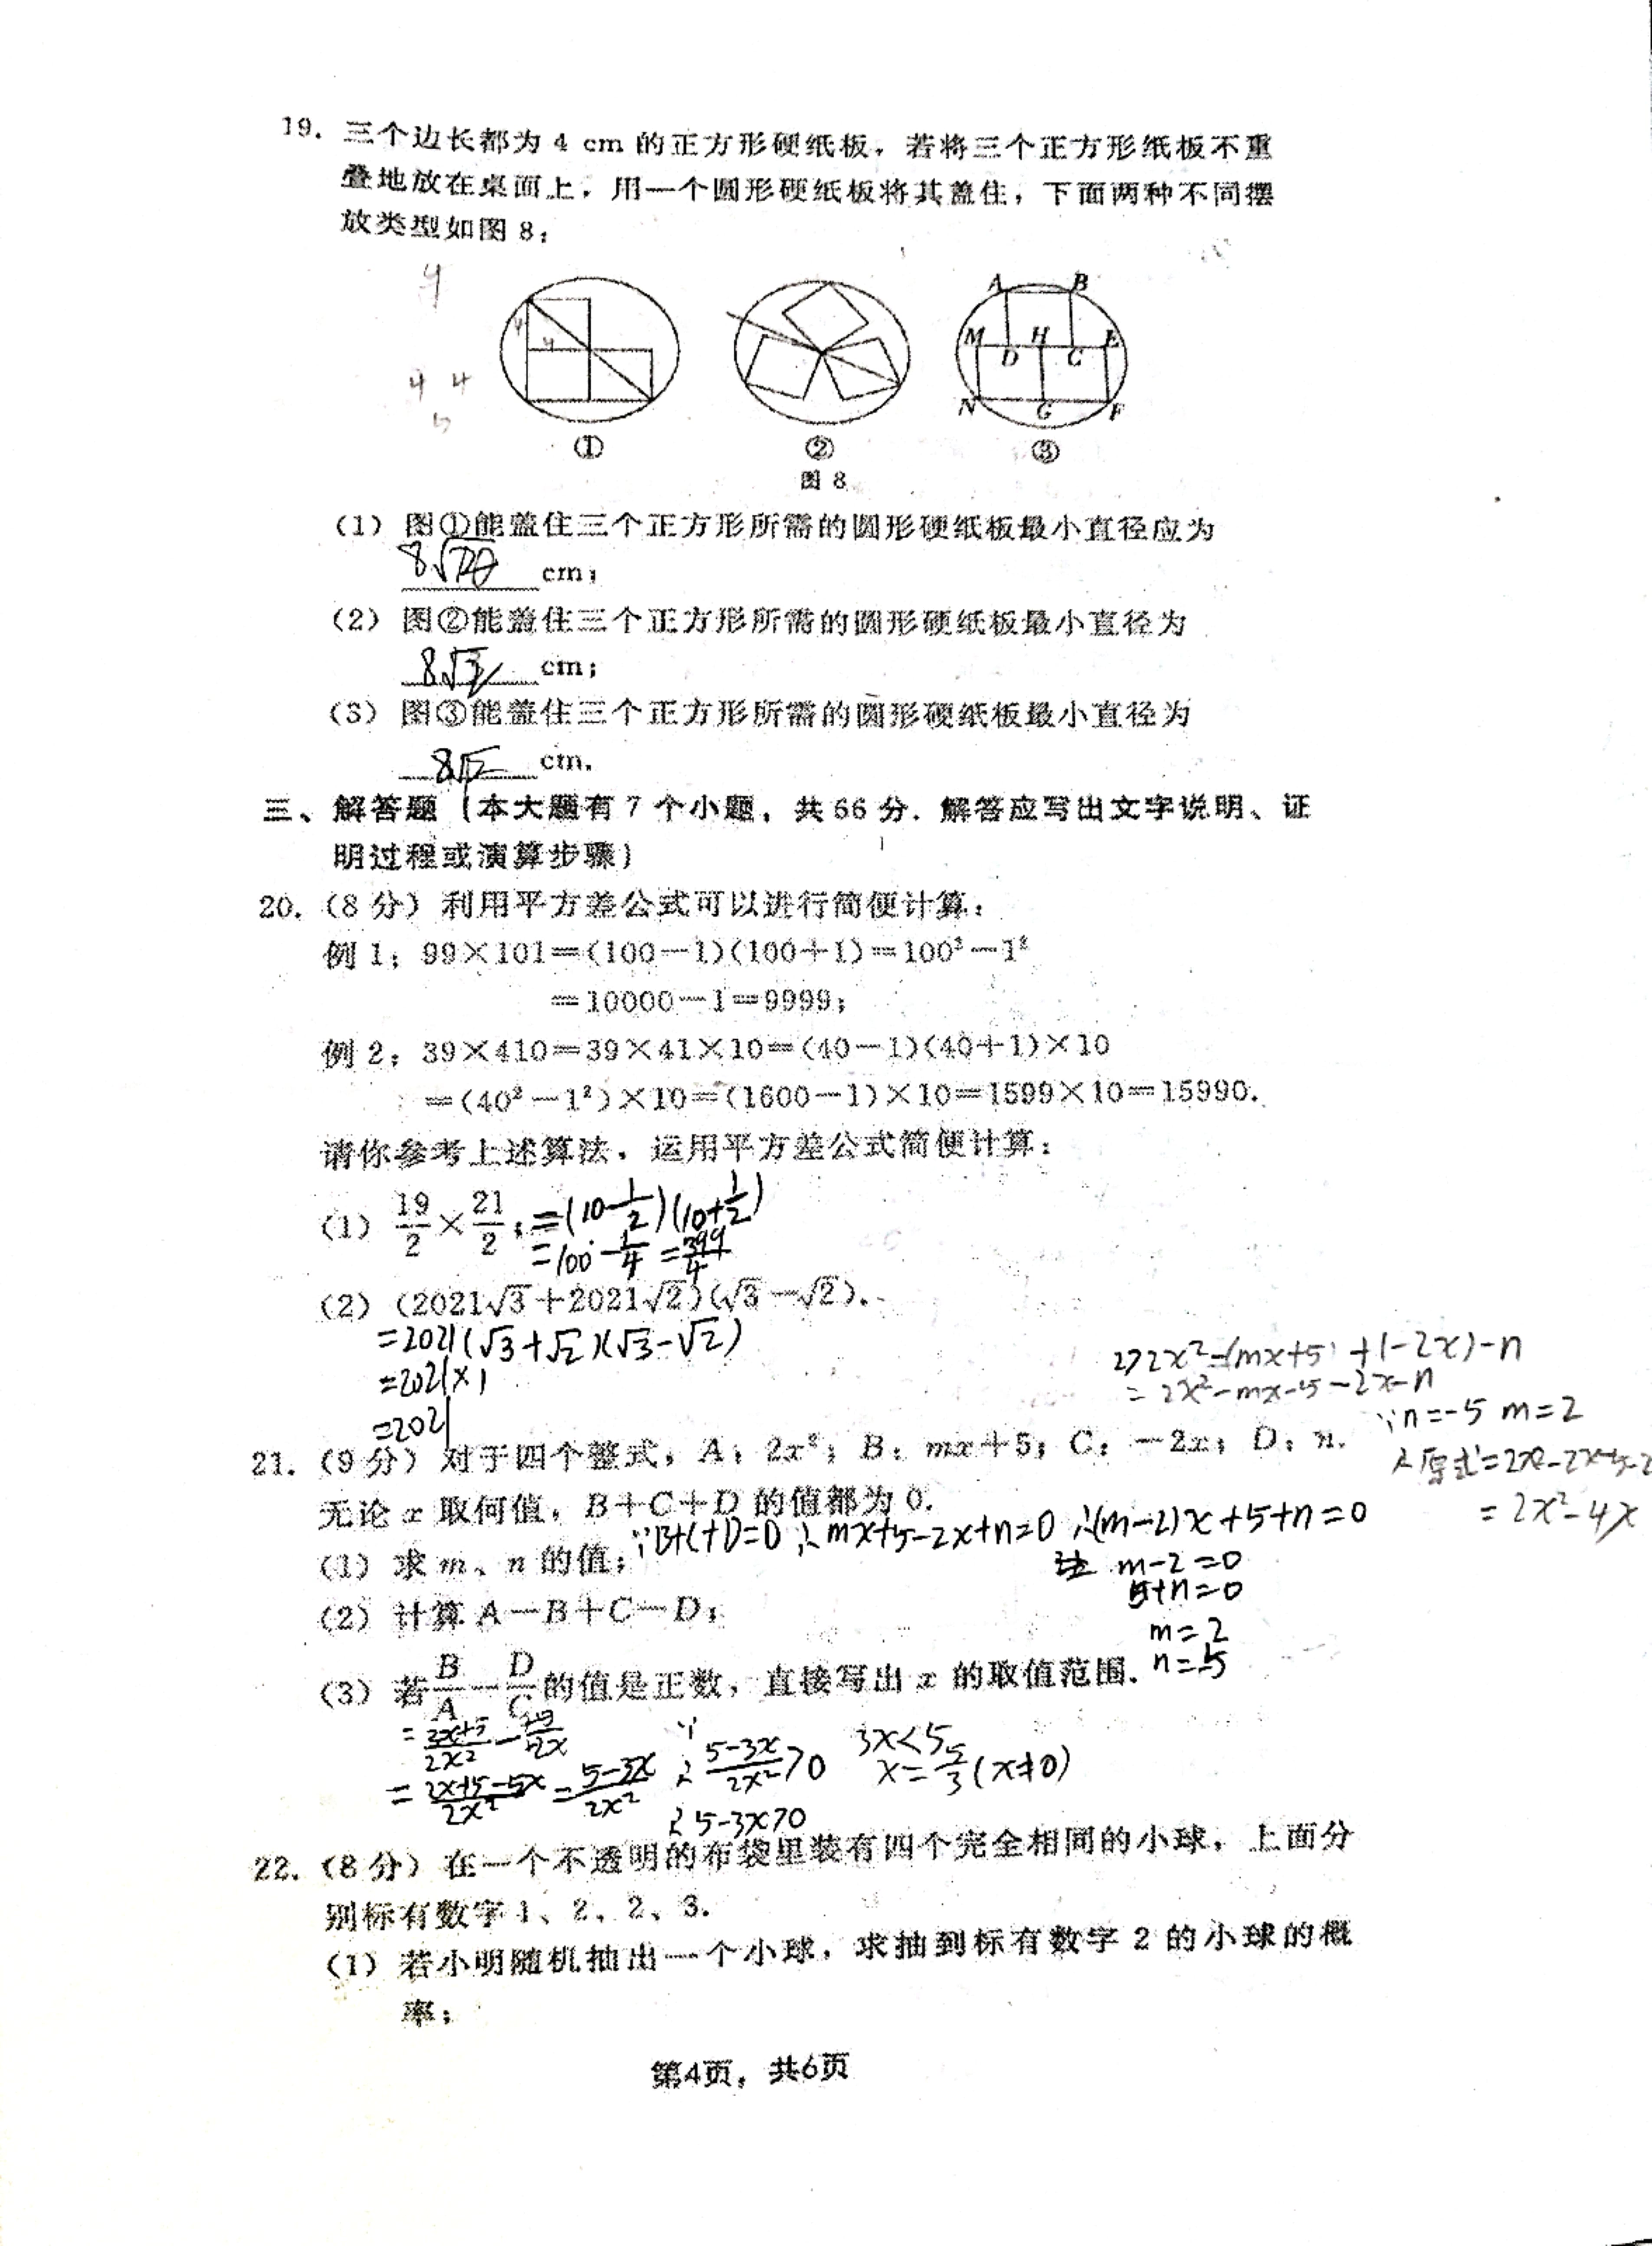 19. 三个边长都为 4 cm 的正方形硬纸板，若将三个正方形纸板不重
叠地放在桌面上，用一个圆形硬纸板将其盖住，下面两种不同摆
放类型如图 8：
4
4 4
4
4
A B
M H E
D C
N G F
① ② ③
图 8
(1) 图①能盖住三个正方形所需的圆形硬纸板最小直径应为
cm；
(2) 图②能盖住三个正方形所需的圆形硬纸板最小直径为
cm；
(3) 图③能盖住三个正方形所需的圆形硬纸板最小直径为
cm.
三、解答题（本大题有 7 个小题，共 66 分. 解答应写出文字说明、证
明过程或演算步骤）
20.（8 分）利用平方差公式可以进行简便计算：
例 1：99×101=(100-1)(100+1)=100²-1²
=10000-1=9999；
例 2：39×410=39×41×10=(40-1)(40+1)×10
=(40²-1²)×10=(1600-1)×10=1599×10=15990.
请你参考上述算法，运用平方差公式简便计算：
(1) 19/2×21/2； =(10-1/2)(10+1/2)
=100-1/4=399/4
(2) (2021√3+2021√2)(√3-√2).
=2021(√3+√2)(√3-√2)
=2021×1
=2021
2) 2x²-(mx+5)+(-2x)-n
=2x²-mx-5-2x-n
∵n=-5 m=2
=2x²-4x
21.（9 分）对于四个整式，A：2x²；B：mx+5；C：-2x；D：n.
无论 x 取何值，B+C+D 的值都为 0.
(1) 求 m、n 的值； ∵B+C+D=0 ∴mx+5-2x+n=0 ∴(m-2)x+5+n=0
m-2=0
5+n=0
m=2
(2) 计算 A-B+C-D；
(3) 若 B/A-D/C 的值是正数，直接写出 x 的取值范围.
∴ 5-3x/2x²>0 3x<5
x=5/3(x≠0)
∴5-3x>0
22.（8 分）在一个不透明的布袋里装有四个完全相同的小球，上面分
别标有数字 1、2、2、3.
(1) 若小明随机抽出一个小球，求抽到标有数字 2 的小球的概
率；
第4页，共6页